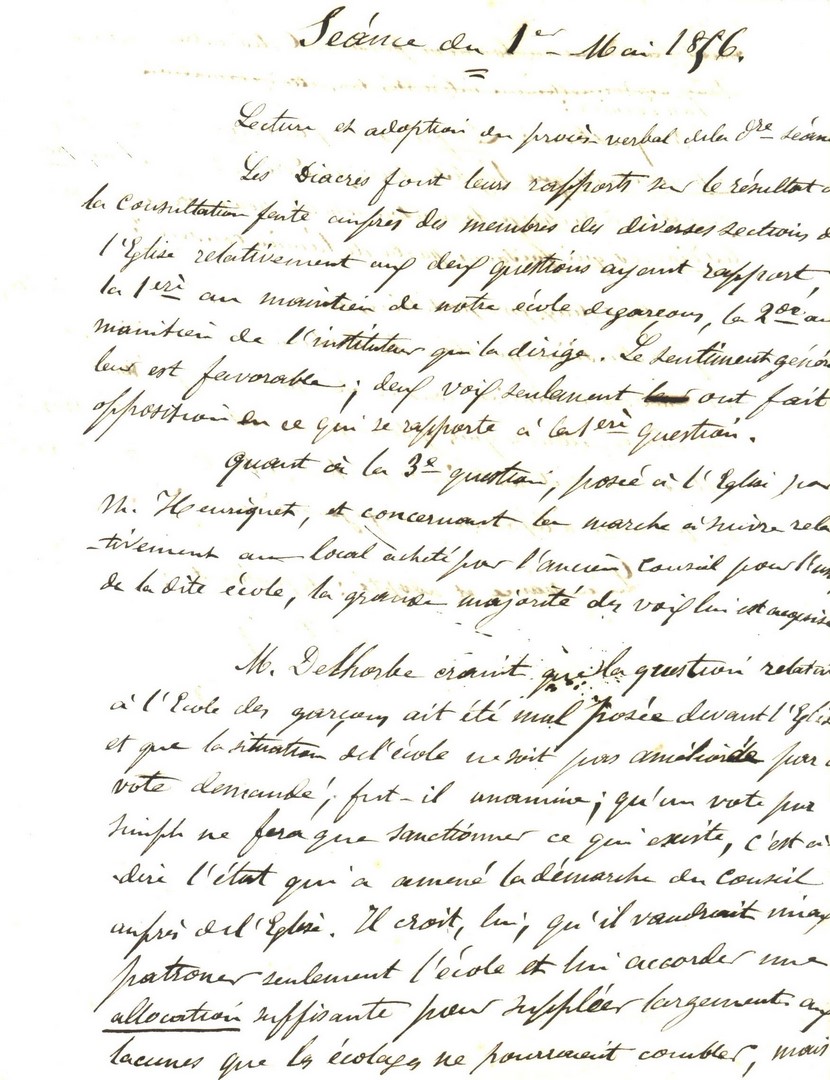 Séance du 1er Mai 1856.
Lecture et adoption du procès verbal de la dre séan
Les Diacres font leurs rapports sur le résultat d
la consultation faite auprès des membres des diverses sections d
l'Eglise relativement aux deux questions ayant rapport,
la 1ère au maintien de notre école de garçons, la 2de au
maintien de l'instituteur qui la dirige. Le sentiment génér
leur est favorable ; deux voix seulement ont fait
opposition en ce qui se rapporte à la 1ère question.
quant à la 3e question, posée à l'Eglise par
M. Henriquet, et concernant la marche à suivre rela
-tivement au local acheté par l'ancien Conseil pour l'us
de la dite école, la grande majorité des voix lui est acquise
M. Delhorbe craint que la question relati
à l'Ecole des garçons ait été mal posée devant l'Eglis
et que la situation de l'école ne soit pas améliorée par
vote demandé, fut-il unanime ; qu'un vote pur
simple ne fera que sanctionner ce qui existe, c'est à
dire l'état qui a amené la démarche du Conseil
auprès de l'Eglise. Il croit, lui, qu'il vaudrait mieux
patroner seulement l'école et lui accorder une
allocation suffisante pour suppléer largement aux
lacunes que les écolages ne pourraient combler, mais